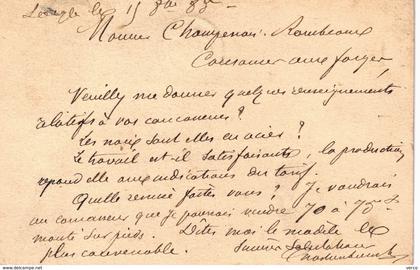 le 15 8bre
Monsieur Champenois-Rambeaux
Cousances aux forges
Veuillez me donner quelques renseignements
relatifs à vos concasseurs ?
Les noix sont elles en acier ?
Le travail est il satisfaisant, la production
répond elle aux indications du tarif
Quelle remise faites vous ? Je voudrais
un concasseur que je pourrais vendre 70 à 75 f
monté sur pieds. Dites moi le modèle le
plus convenable.